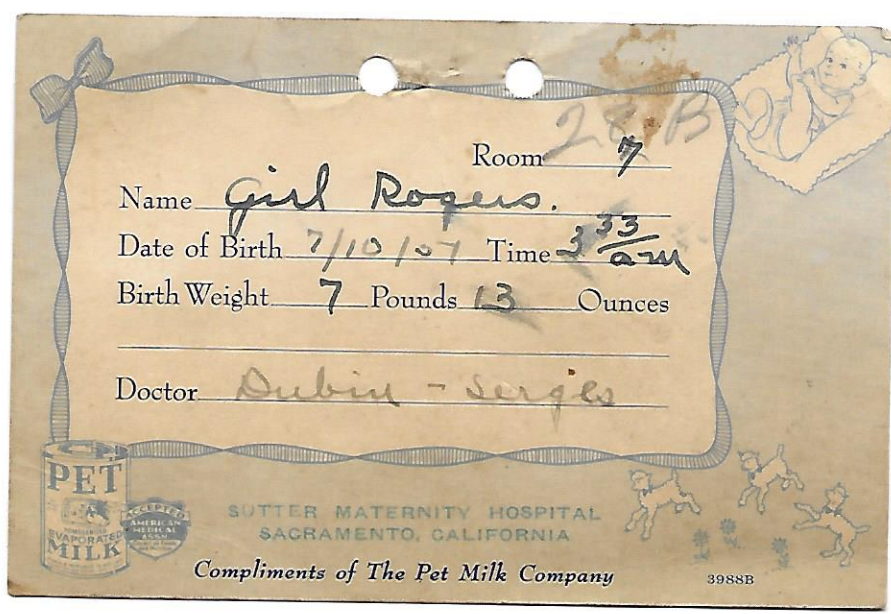 28 B
Room 7
Name Girl Rogers.
Date of Birth 7/10/ Time 3 33/am
Birth Weight 7 Pounds 13 Ounces
Doctor Dubin -
PET
EVAPORATED
MILK
ACCEPTED
AMERICAN
MEDICAL
ASSN.
SUTTER MATERNITY HOSPITAL
SACRAMENTO, CALIFORNIA
Compliments of The Pet Milk Company
3988B